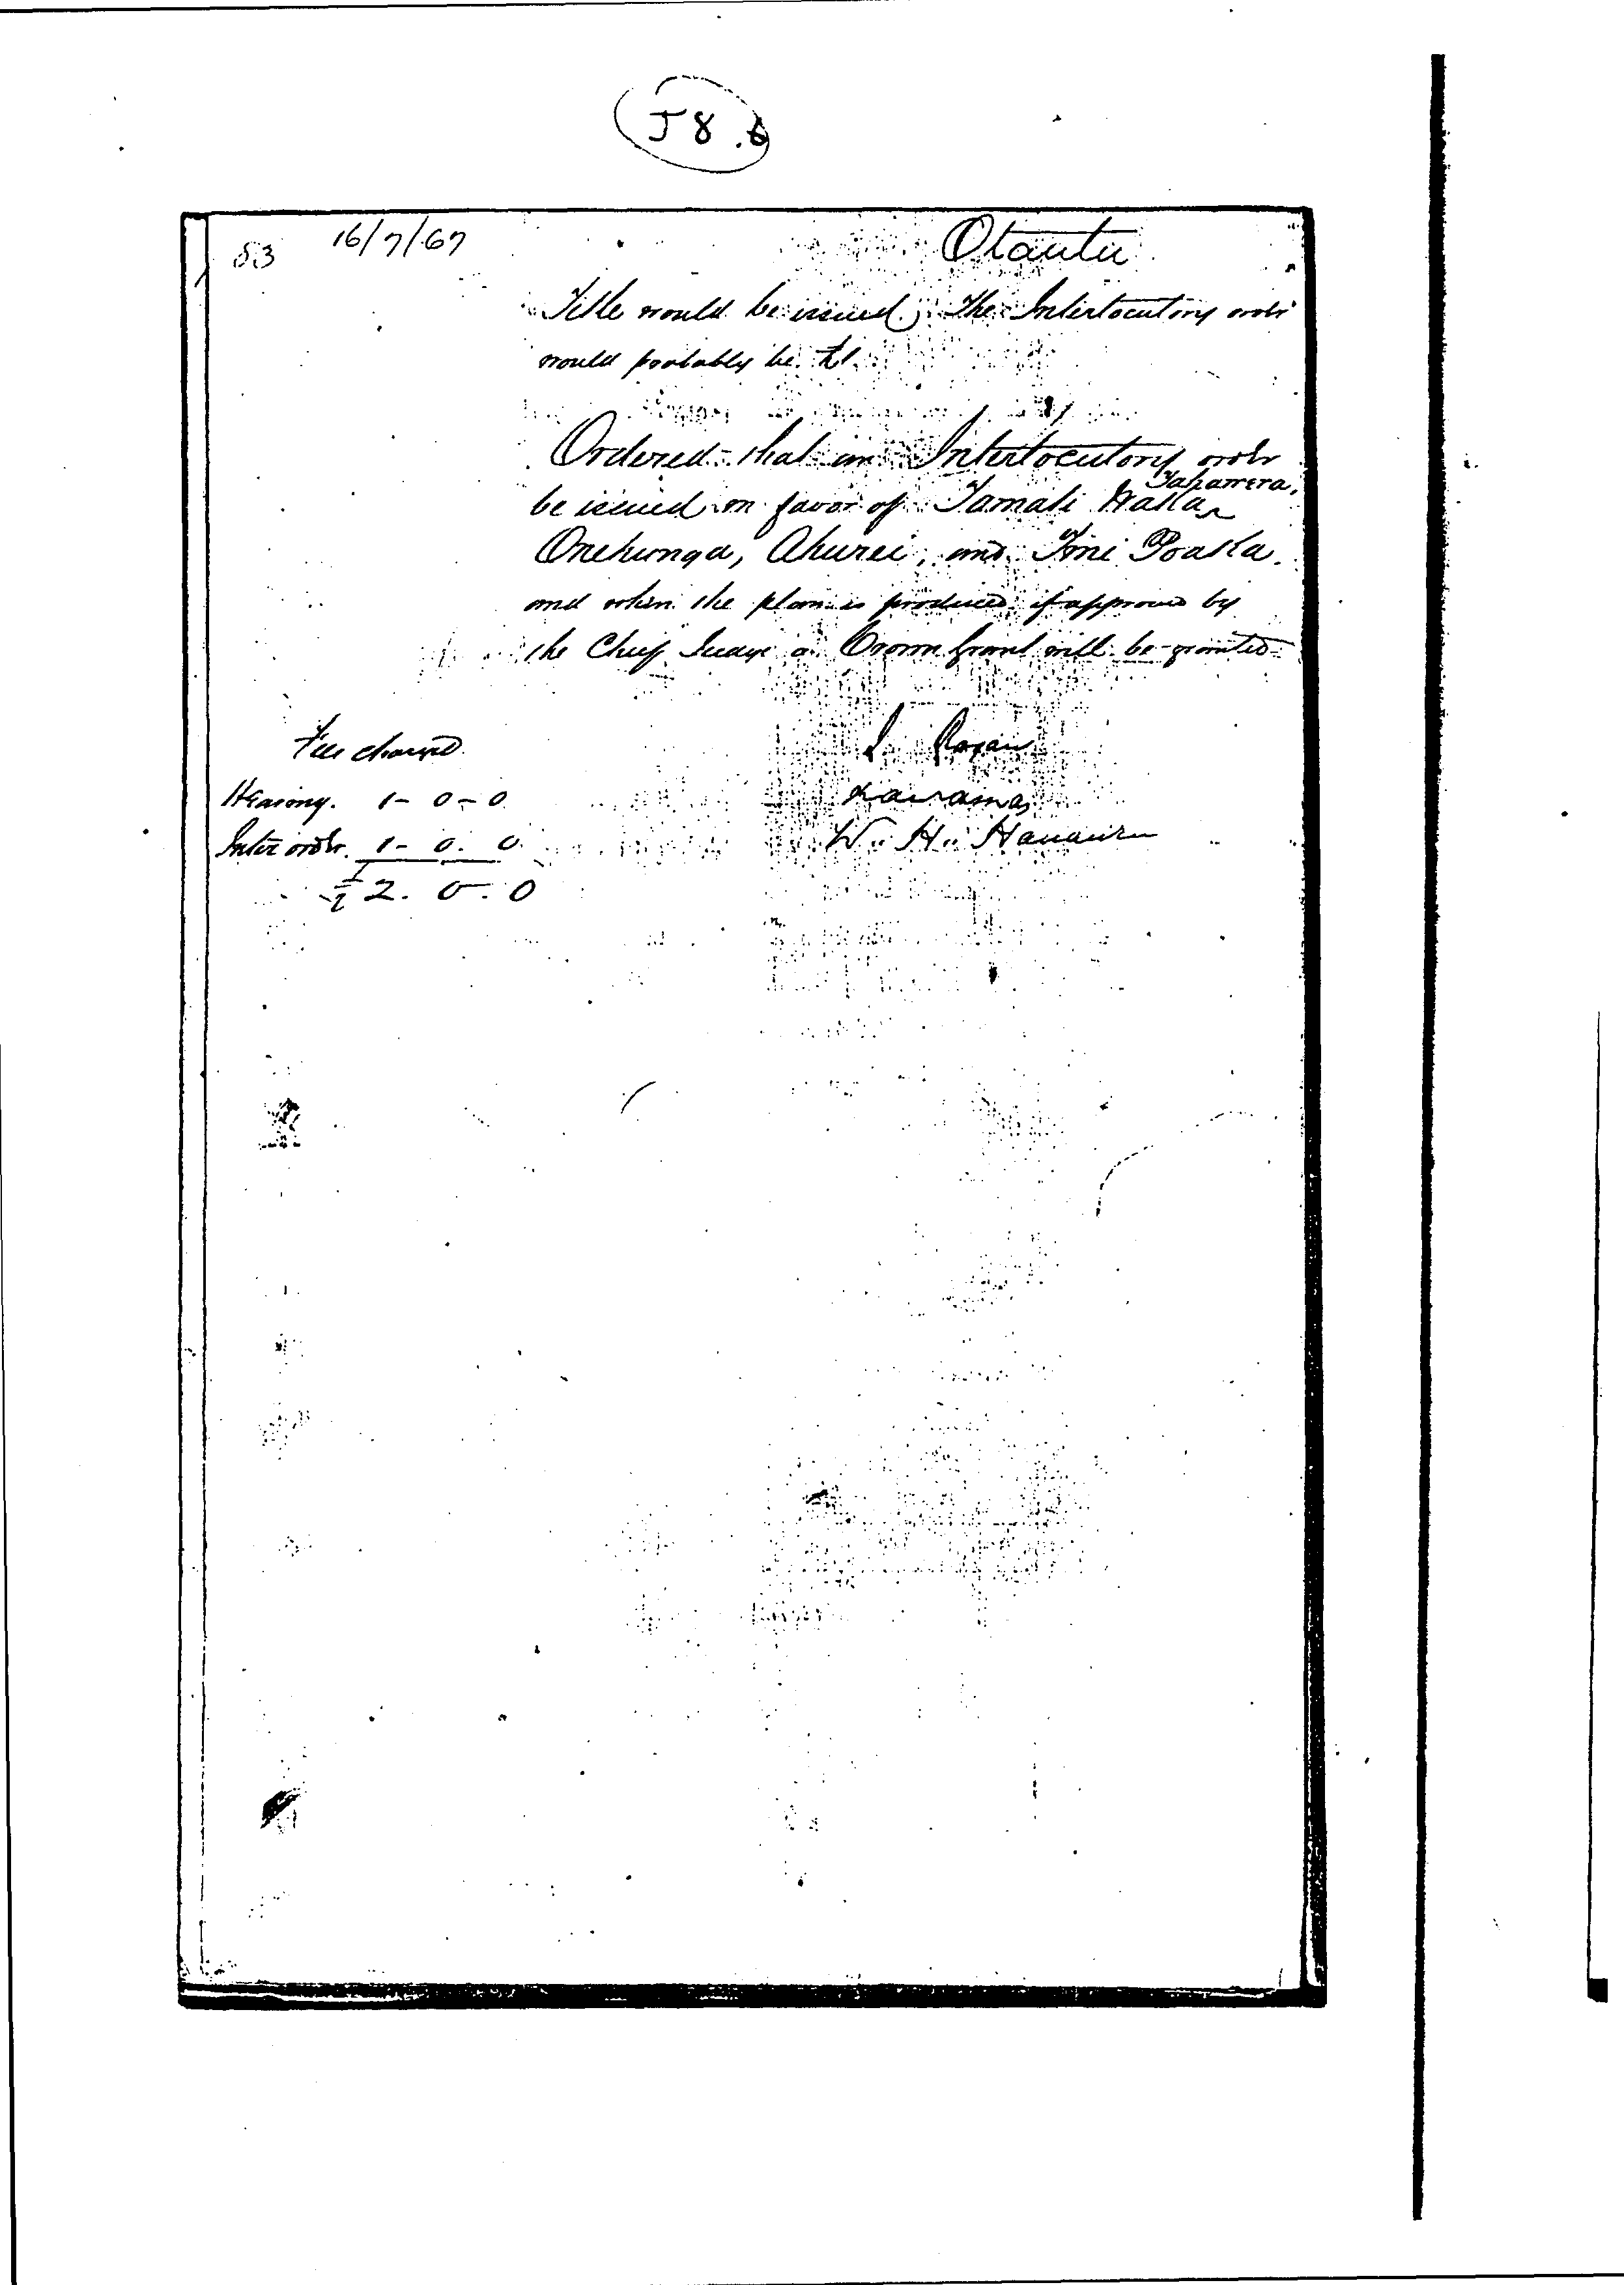 J8.6
53 16/7/67 Otautu
Title would be issued. The Interlocutory order
would probably be
Ordered that an Interlocutory order
Taharoera,
be issued in favor of Tamati Waka
Onehunga, Ahurei, and Toni Poaka.
and when the plan is produced, if approved by
the Chief Judge a Crown Grant will be granted
Fees charged.
Hearing. 1-0-0
Inter order. 1-0.0
£2.0.0
J. Rogan
W. H.